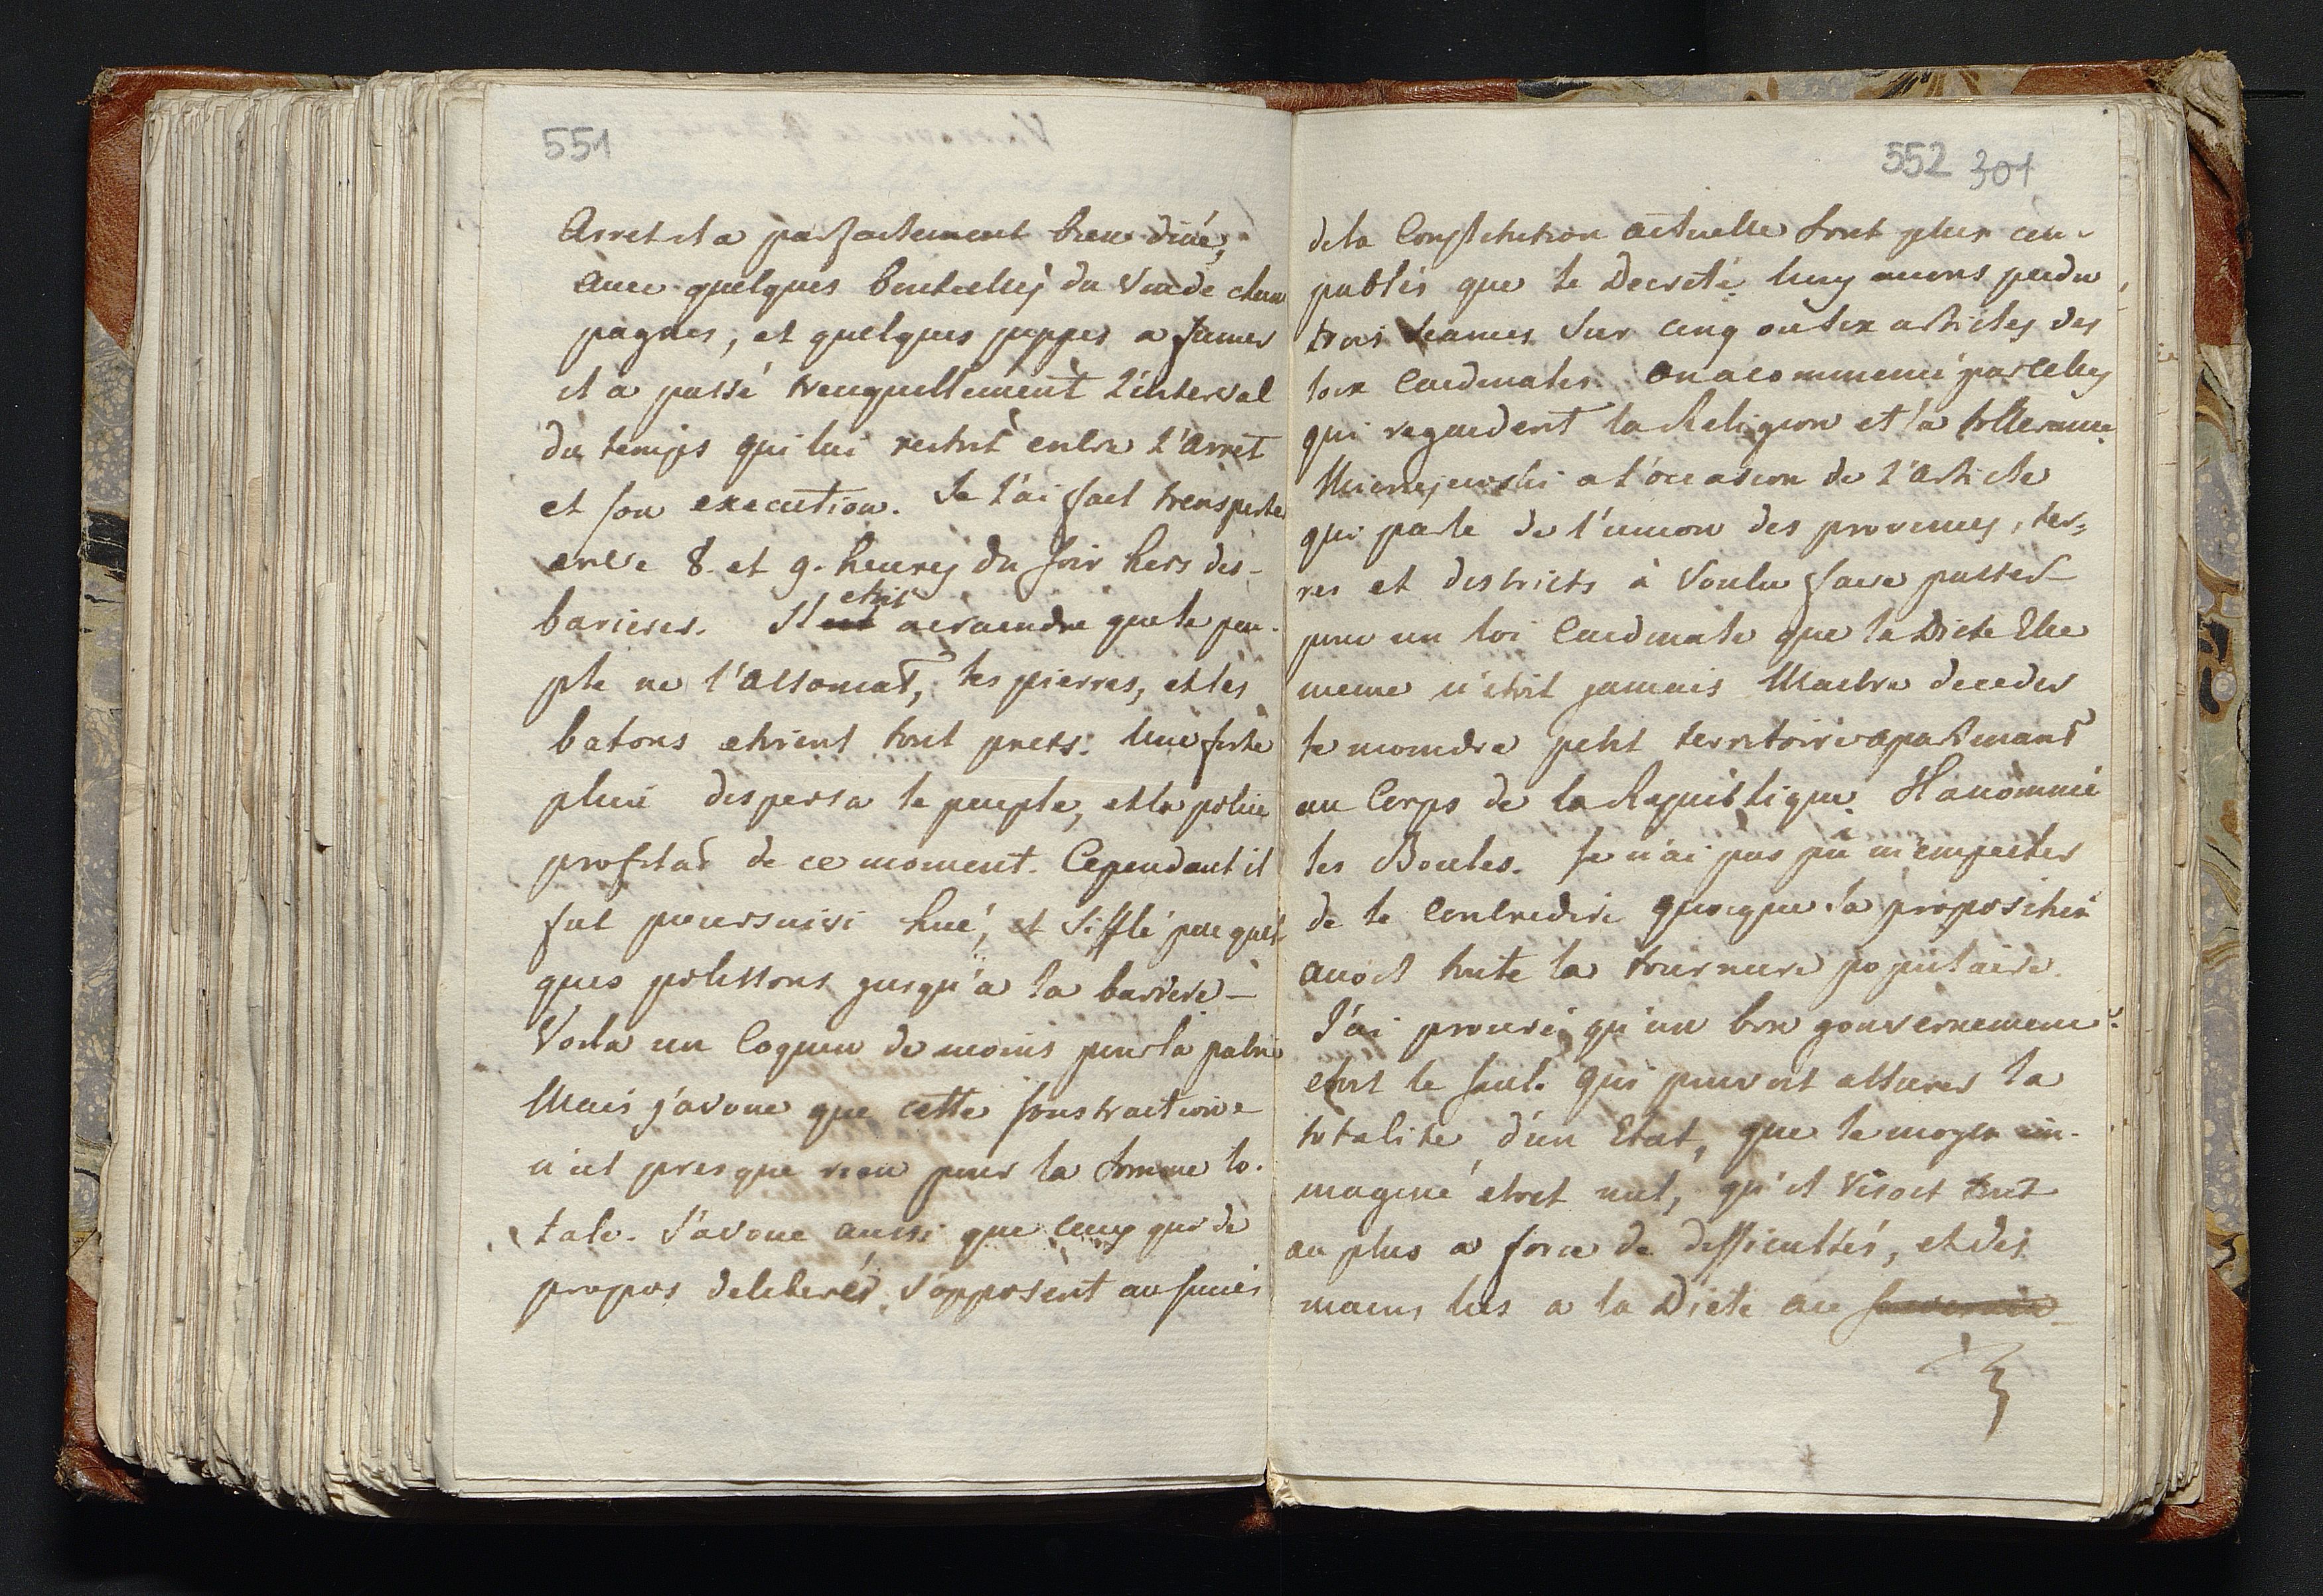 551
Arret il a parfaitement bien diné,
avec quelques bouteilles du vin de cham
pagnes, et quelques pippes a fumer
il a passé trenquillement l'interval
du temps qui lui restoit entre l'Arret
et son execution. Je l'ai fait transporter
entre 8. et 9. heures du soir hors des
barieres. Il etoit acraindre que le peu-
ple ne l'assomat, les pierres, et les
batons etoient tout prets. Une forte
pluie dispersa le peuple, et la police
profitat de ce moment. Cependant il
fut poursuivi hué, et sifflé par quel-
ques polissons jusqu'a la barriere –
Voila un Coquin de moins pour la patrie
Mais j'avoue que cette soustraction
n'est presque rien pour la somme to-
tale. J'avoue aussi que ceux qui de
propos deliberés s'opposent au succés
552 301
dela Constitution actuelle sont plus cou-
pables que le Decreté. Nous avons perdu
trois seances sur cinq ou six articles des
loix Cardinales. On a commencé par celles
qui regardent la Religion et la tollerance
Mierzejewski a l'occasion de l'Article
qui parle de l'union des provinces, ter-
res et districts à voulu faire passer
pour un loi Cardinale que la Diete Elle
meme n'etoit jamais Maitre de ceder
le moindre petit territoire apartenant
au Corps de la Republique. Il a nommé
les Boules. Je n'ai pas pu m'empecher
de le Contredire quoique la proposition
avoit toute la tournure populaire.
J'ai prouvé qu'un bon gouvernement
etoit le seul qui pouvoit assurer la
totalité d'un Etat, que le moyen im-
maginé etoit nul, qu'il visoit tout
au plus a force de difficultés, et des
mains liés a la Diete au souverain